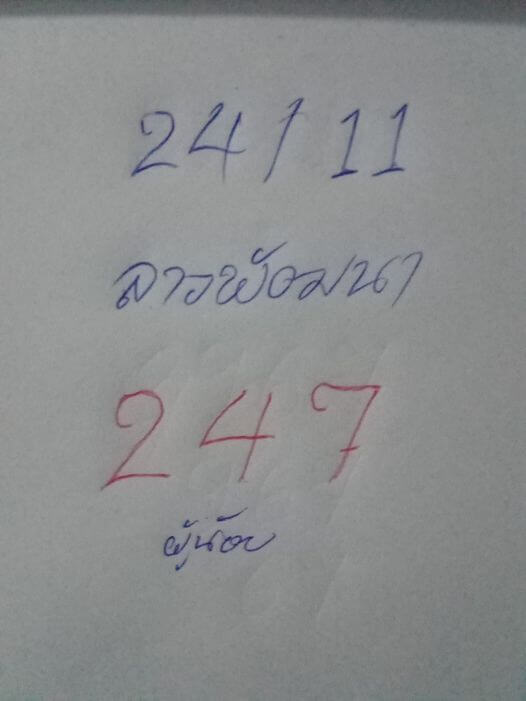 24/11
ลาวพัฒนา
247
ผู้น้อย